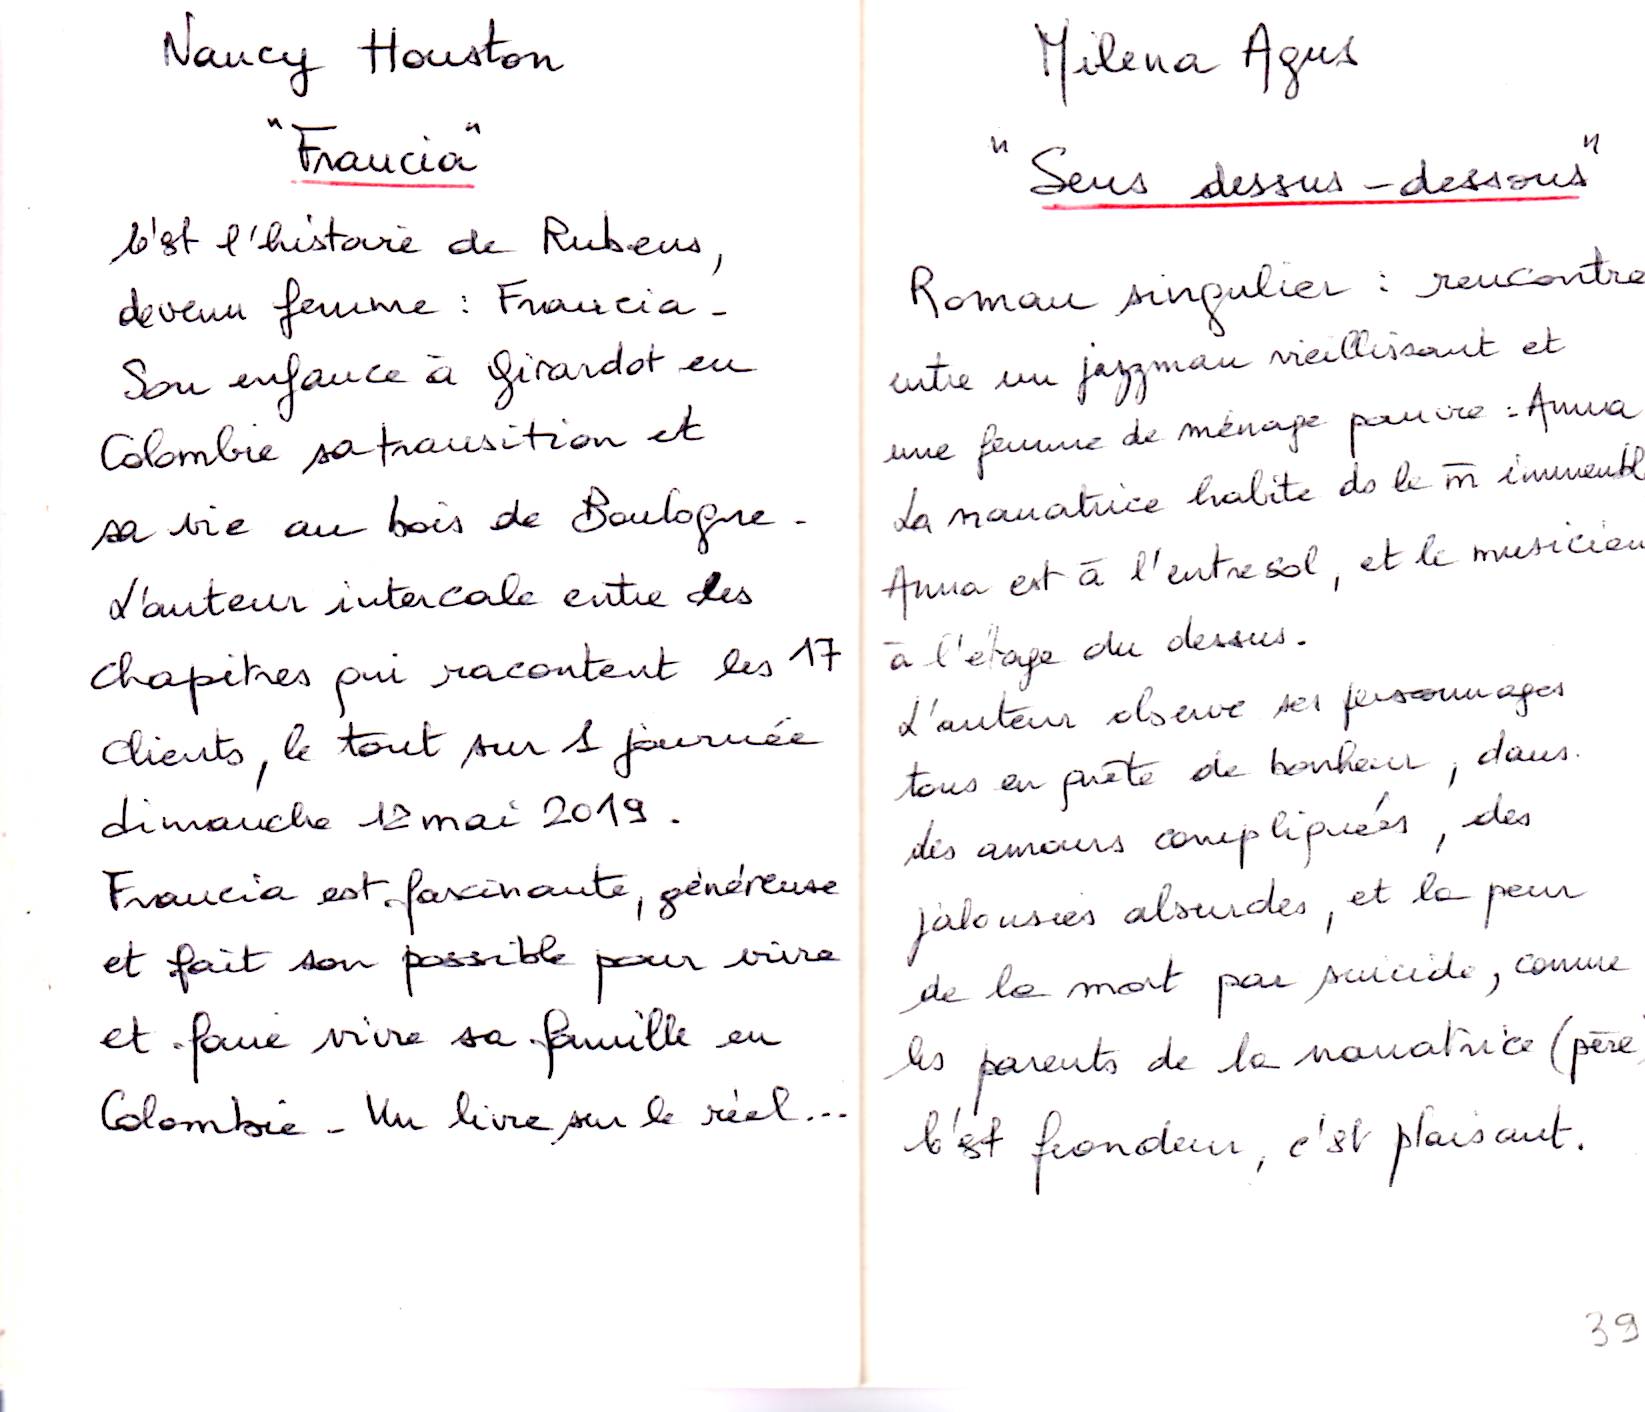 Nancy Houston
"Francia"
C'est l'histoire de Rubens,
devenu femme : Francia -
Son enfance à Girardot en
Colombie sa transition et
sa vie au bois de Boulogne -
L'auteur intercale entre des
chapitres qui racontent les 17
clients, le tout sur 1 journée
dimanche 12 mai 2019.
Francia est fascinante, généreuse
et fait son possible pour vivre
et faire vivre sa famille en
Colombie - Un livre sur le réel...
Milena Agus
"Sens dessus-dessous"
Roman singulier : rencontre
entre un jazzman vieillissant et
une femme de ménage pauvre : Anna
La narratrice habite ds le m̄ immeubl
Anna est à l'entresol, et le musicien
à l'étage du dessus.
L'auteur observe ses personnages
tous en quête de bonheur, dans
des amours compliquées, des
jalousies absurdes, et la peur
de la mort par suicide, comme
les parents de la narratrice (père)
C'est frondeur, c'est plaisant.
39